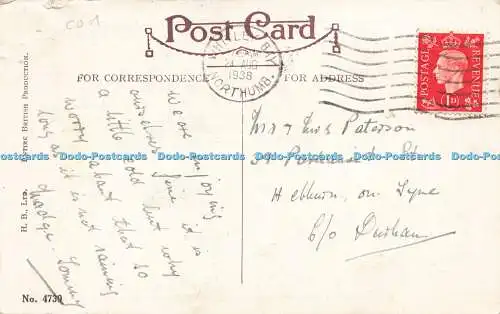 CO1
Post Card
FOR CORRESPONDENCE
FOR ADDRESS
WHITLEY BAY
AUG
1938
NORTHUMB.
POSTAGE
REVENUE
1D
ENTIRE BRITISH PRODUCTION.
H. B., LTD.
We are enjoying
ourselves fine it is
a little cold but why
worry about that so
long as it is not raining
Madge. Tommy
Mr & Mrs Paterson
St
Hebburn on Tyne
C/o Durham
Dodo-Postcards Dodo-Postcards Dodo-Postcards Dodo-Postcards Dodo-Postcards Dodo-Postcards
No. 4739